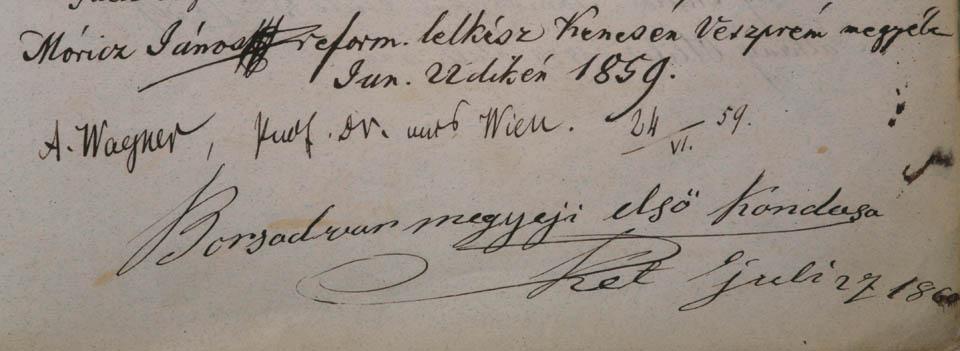 Móricz János reform. lelkész Kenesén Veszprém megyébe
Jun. 22dikén 1859.
A. Wagner, Prof. Dr. aus Wien. 24/VI. 59.
Borsodvarmegyeji első Kondása
Ket Juli 27 1860